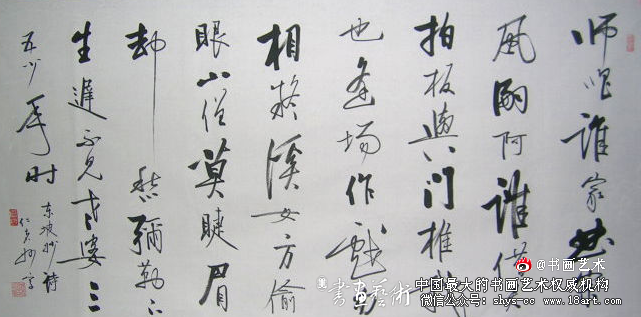 师唱谁家曲
风嗣阿谁借君
拍板與门推
也逢场作戏莫
相疑溪女方偷
眼山僧莫睫眉
却愁彌勒下
生遲不見老婆三
五少年时
东坡妙诗
@书画艺术
书画艺术
中国最大的书画艺术权威机构
微信公众号: shys-cc www.18art.com